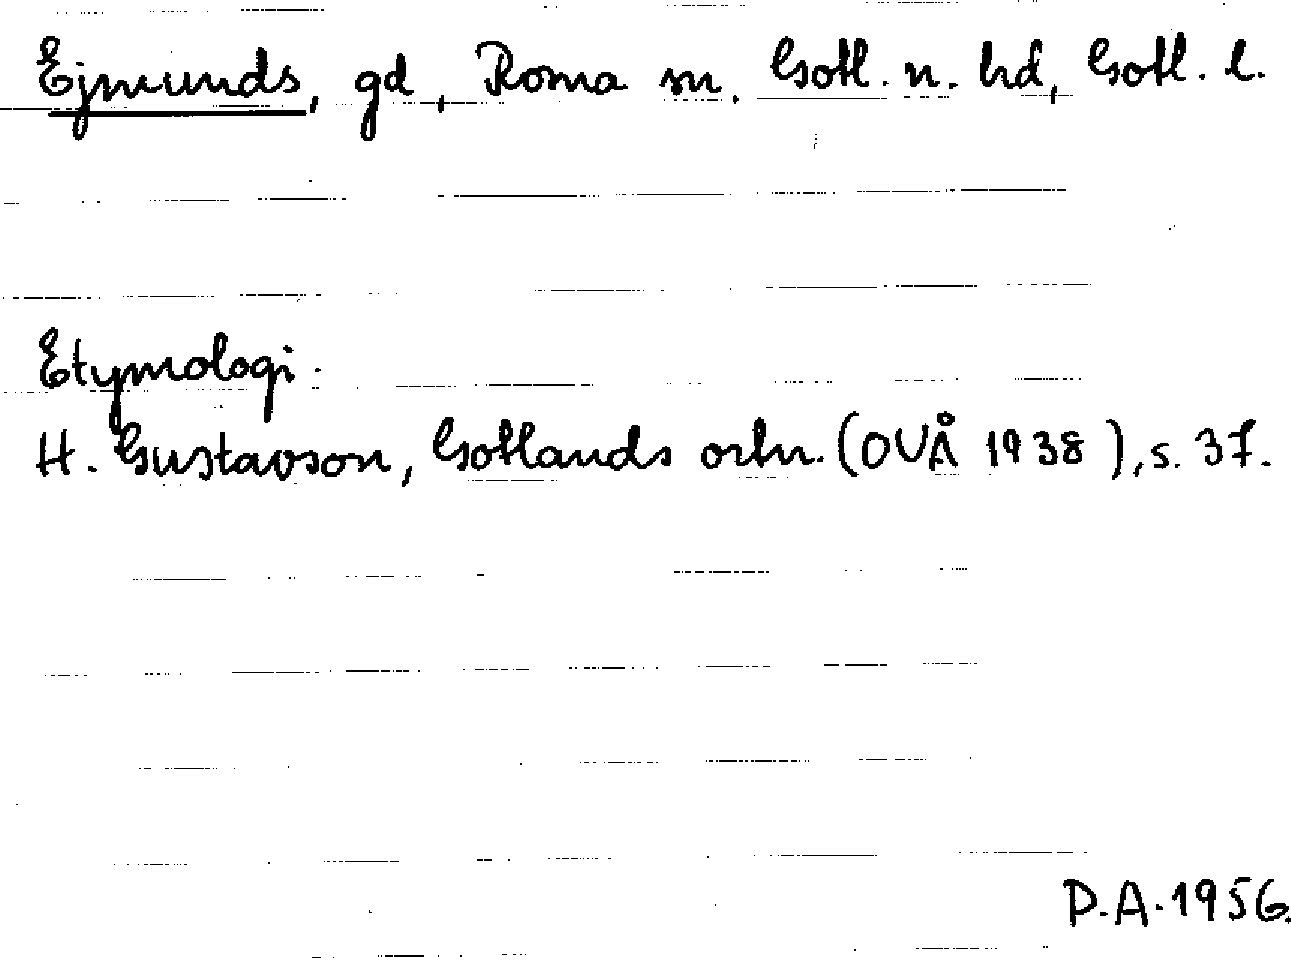 Ejmunds, gd, Roma sn. Gotl. n. hd, Gotl. l.
Etymologi.
H. Gustavson, Gotlands ortn. (OVÅ 1938), s. 37.
P.A. 1956.